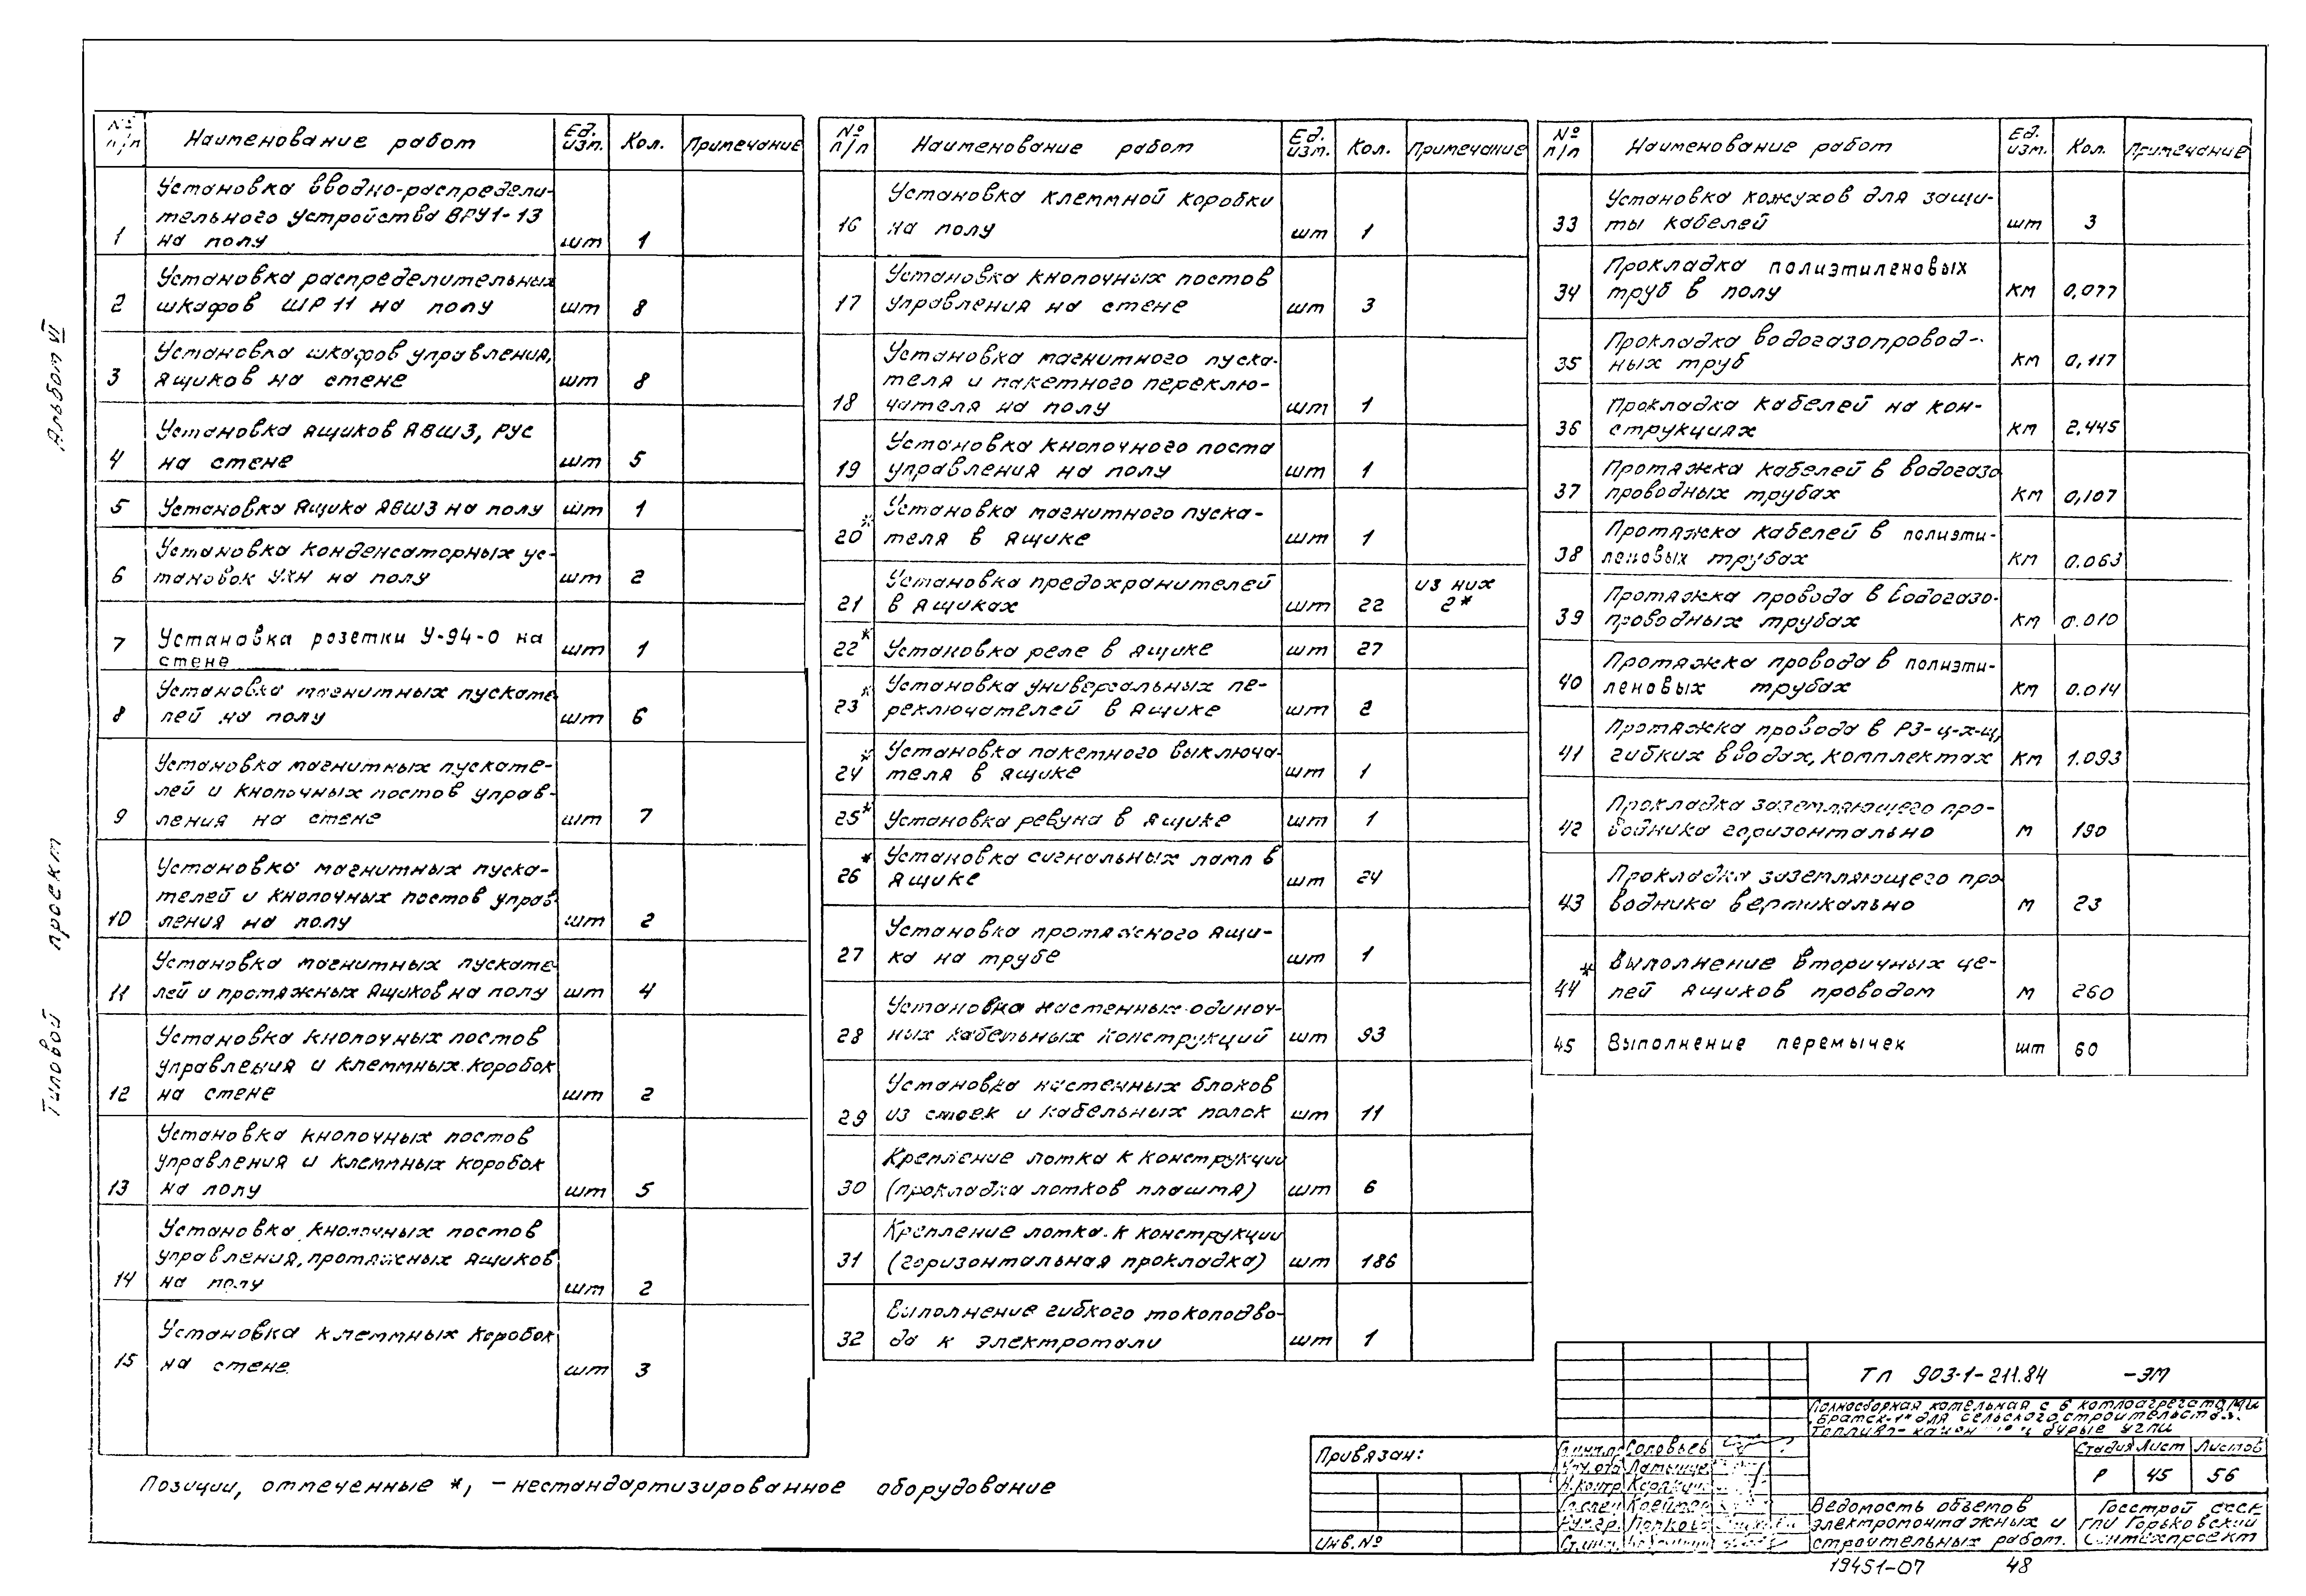 Альбом VI
Типовой проект
№ п/п Наименование работ Ед. изм. Кол. Примечание
1 Установка вводно-распредели-
тельного устройства ВРУ1-13
на полу шт 1
2 Установка распределительных
шкафов ШР11 на полу шт 8
3 Установка шкафов управления,
ящиков на стене шт 8
4 Установка ящиков ЯВШ3, РУС
на стене шт 5
5 Установка ящика ЯВШ3 на полу шт 1
6 Установка конденсаторных ус-
тановок УКН на полу шт 2
7 Установка розетки У-94-0 на
стене шт 1
8 Установка магнитных пускате-
лей на полу шт 6
9 Установка магнитных пускате-
лей и кнопочных постов управ-
ления на стене шт 7
10 Установка магнитных пуска-
телей и кнопочных постов управ-
ления на полу шт 2
11 Установка магнитных пускате-
лей и протяжных ящиков на полу шт 4
12 Установка кнопочных постов
управления и клеммных коробок
на стене шт 2
13 Установка кнопочных постов
управления и клеммных коробок
на полу шт 5
14 Установка кнопочных постов
управления, протяжных ящиков
на полу шт 2
15 Установка клеммных коробок
на стене. шт 3
№ п/п Наименование работ Ед. изм. Кол. Примечание
16 Установка клеммной коробки
на полу шт 1
17 Установка кнопочных постов
управления на стене шт 3
18 Установка магнитного пуска-
теля и пакетного переклю-
чателя на полу шт 1
19 Установка кнопочного поста
управления на полу шт 1
20* Установка магнитного пуска-
теля в ящике шт 1
21 Установка предохранителей из них
в ящиках шт 22 2*
22* Установка реле в ящике шт 27
23* Установка универсальных пе-
реключателей в ящике шт 2
24* Установка пакетного выключа-
теля в ящике шт 1
25* Установка ревуна в ящике шт 1
26* Установка сигнальных ламп в
ящике шт 24
27 Установка протяжного ящи-
ка на трубе шт 1
28 Установка настенных одиноч-
ных кабельных конструкций шт 93
29 Установка настенных блоков
из стоек и кабельных полок шт 11
30 Крепление лотка к конструкции
(прокладка лотков плашмя) шт 6
31 Крепление лотка к конструкции
(горизонтальная прокладка) шт 186
32 Выполнение гибкого токоподво-
да к электротали шт 1
№ п/п Наименование работ Ед. изм. Кол. Примечание
33 Установка кожухов для защи-
ты кабелей шт 3
34 Прокладка полиэтиленовых
труб в полу км 0,077
35 Прокладка водогазопровод-
ных труб км 0,117
36 Прокладка кабелей на кон-
струкциях км 2.445
37 Протяжка кабелей в водогазо
проводных трубах км 0,107
38 Протяжка кабелей в полиэти-
леновых трубах км 0.063
39 Протяжка провода в водогазо-
проводных трубах км 0.010
40 Протяжка провода в полиэти-
леновых трубах км 0.014
41 Протяжка провода в РЗ-Ц-Х-Щ,
гибких вводах, комплектах км 1.093
42 Прокладка заземляющего про-
водника горизонтально м 190
43 Прокладка заземляющего про
водника вертикально м 23
44* Выполнение вторичных це-
пей ящиков проводом м 260
45 Выполнение перемычек шт 60
Позиции, отмеченные *, – нестандартизированное оборудование
Привязан:
Инв.№
ТП 903-1-211.84 -ЭМ
Полносборная котельная с 6 котлоагрегатами
"Братск-1" для сельского строительства.
бурые угли
Соловьев
Стадия Лист Листов
Р 45 56
Ведомость объемов
электромонтажных и
строительных работ.
Госстрой СССР
ГПИ Горьковский
Сантехпроект
19451-07 48